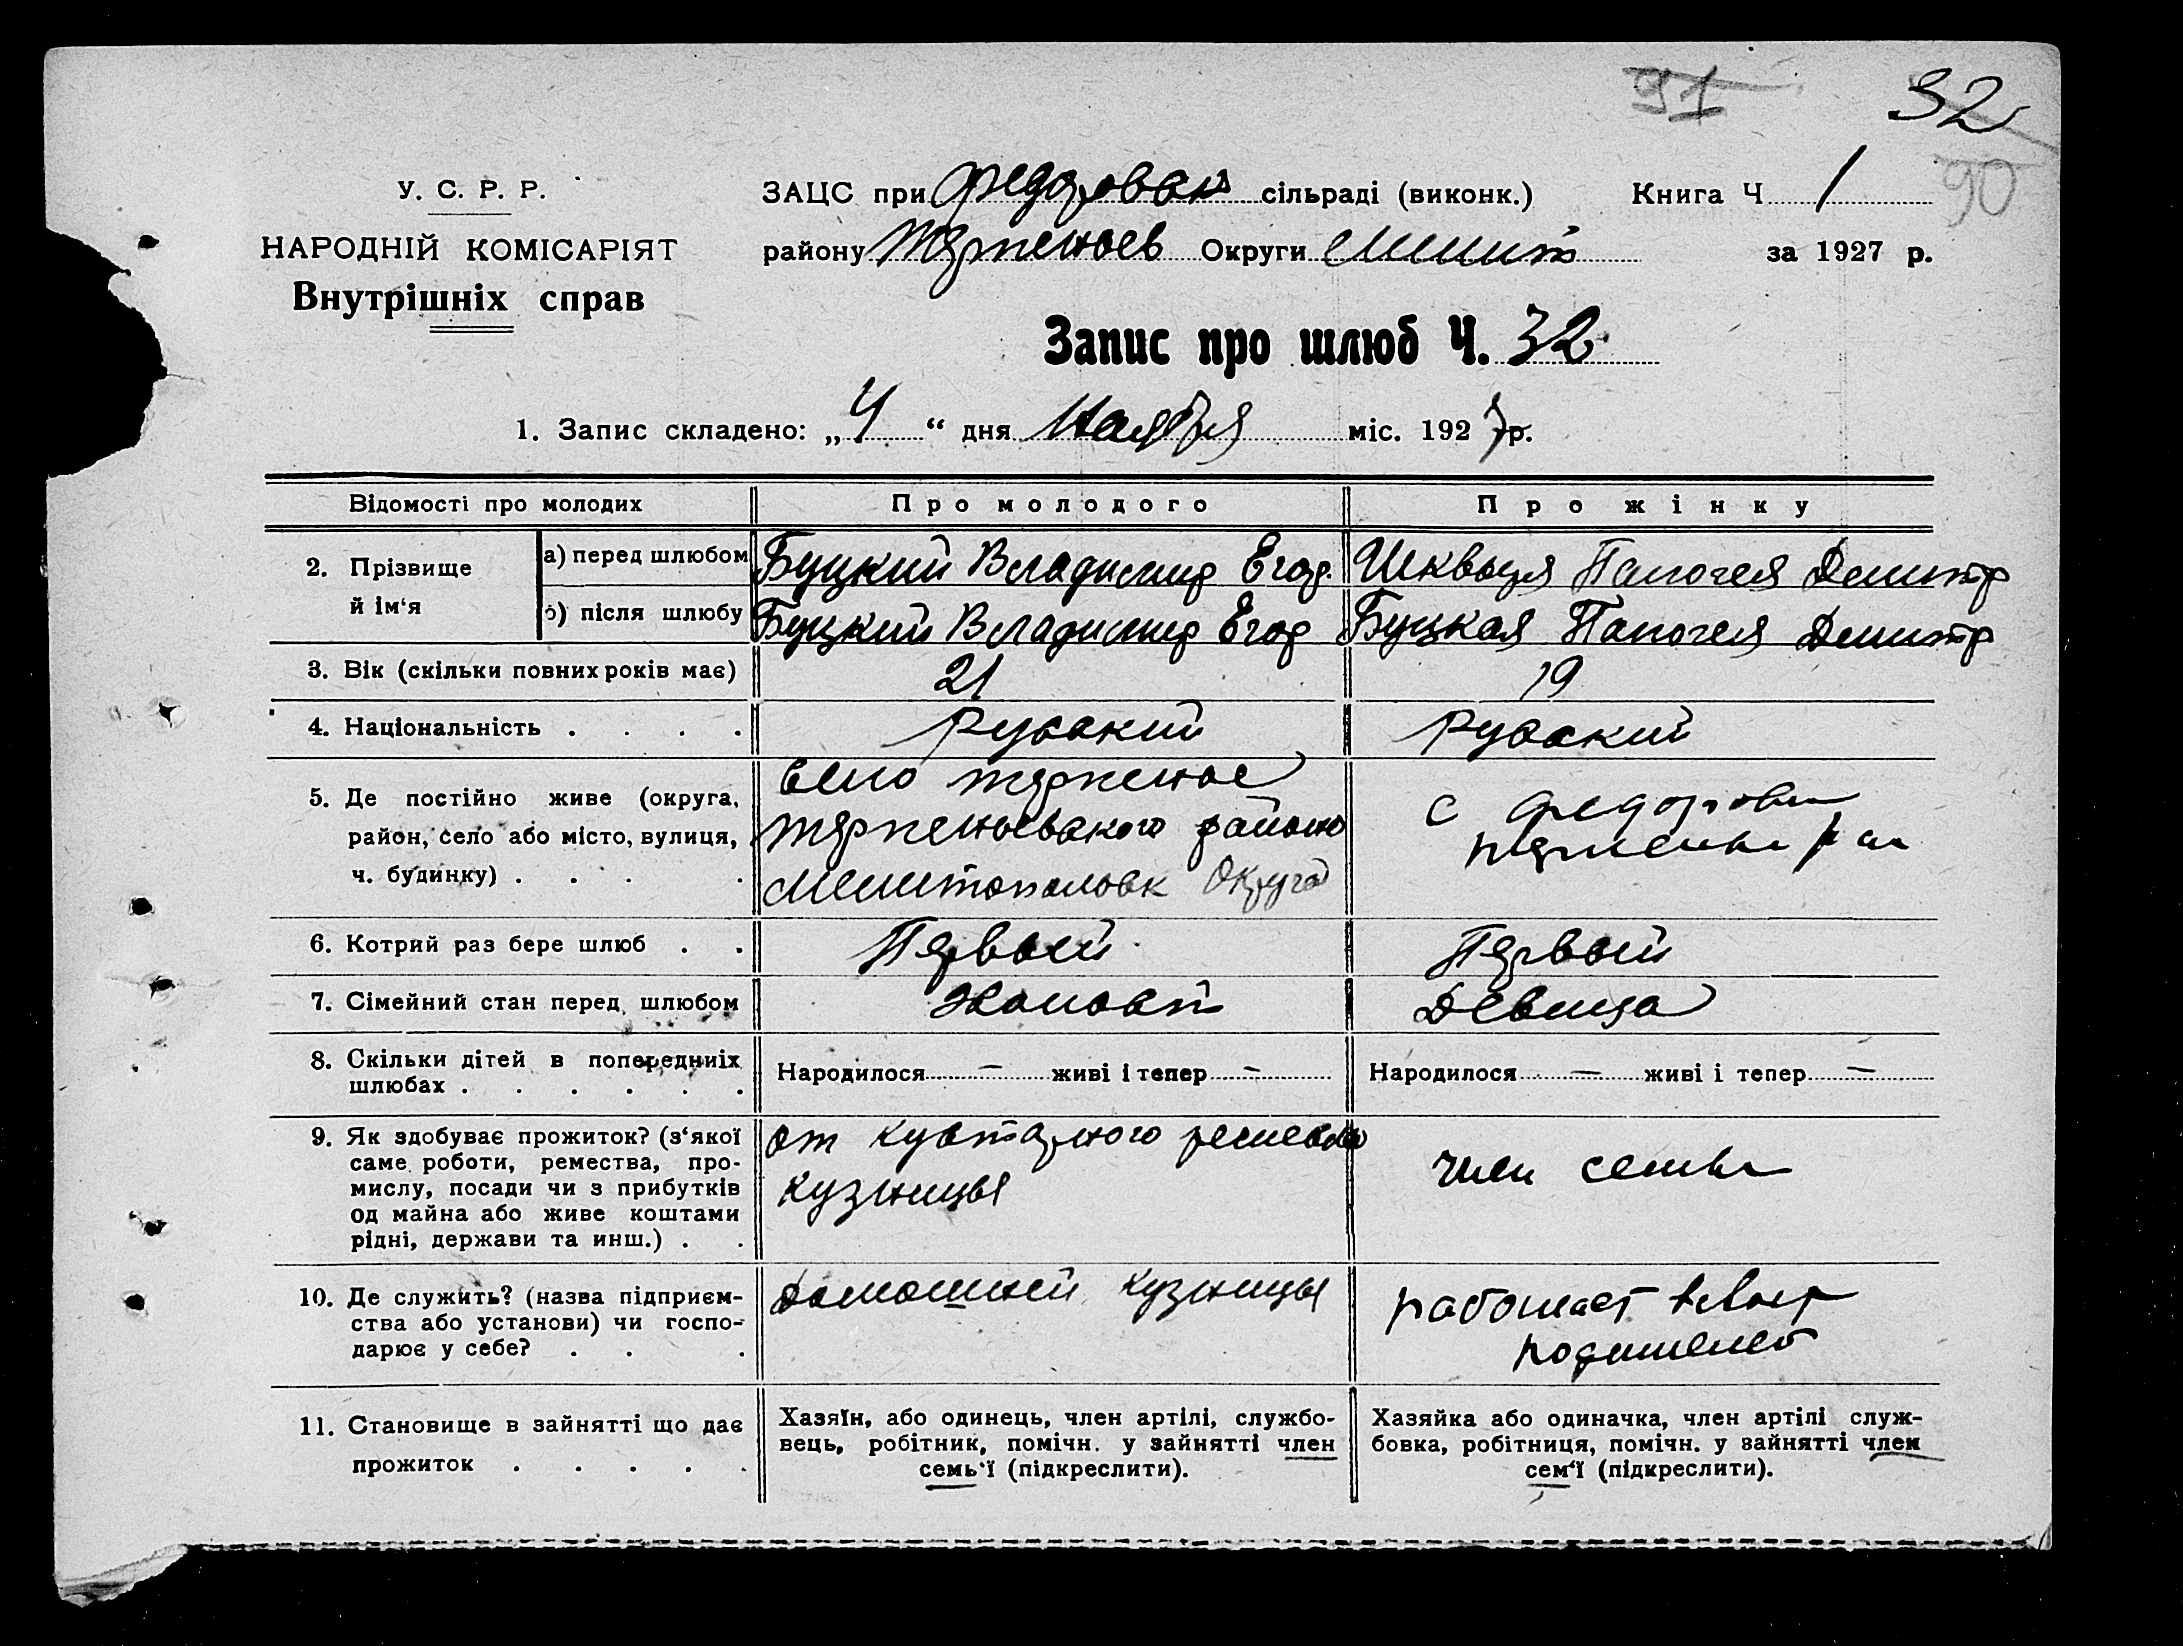 91
32
90
У. С. Р. Р.
НАРОДНІЙ КОМІСАРІЯТ
Внутрішніх справ
ЗАЦС при Федоровск сільраді (виконк.) Книга Ч 1
району Терпеньев Округи Мелит за 1927 р.
Запис про шлюб Ч. 32
1. Запис складено: „4“ дня Ноября міс. 1927 р.
Відомості про молодих Про молодого Про жінку
2. Прізвище й ім‘я
а) перед шлюбом Буцкий Владимир Егор. Шквыря Дмитр
б) після шлюбу Буцкий Владимир Егор Буцкая Дмитр
3. Вік (скільки повних років має) 21 19
4. Національність . . . . Русский Русский
5. Де постійно живе (округа,
район, село або місто, вулиця,
ч. будинку) . . . .
село Терпенье
Терпеньевского района
Мелитопольск Округа
с Федоровка
р на
6. Котрий раз бере шлюб . . Первый Первый
7. Сімейний стан перед шлюбом Холост Девица
8. Скільки дітей в попередниіх
шлюбах . . . . . .
Народилося — живі і тепер — Народилося — живі і тепер —
9. Як здобуває прожиток? (з‘якої
саме роботи, ремества, про-
мислу, посади чи з прибутків
од майна або живе коштами
рідні, держави та инш.) . .
от кустарного ремесла
кузницы
член семьи
10. Де служить? (назва підприєм-
ства або установи) чи госпо-
дарює у себе? . . .
домашней кузницы
работает
родителей
11. Становище в зайнятті що дає
прожиток . . . . .
Хазяїн, або одинець, член артілі, службо-
вець, робітник, помічн. у зайнятті член
семь‘ї (підкреслити).
Хазяйка або одиначка, член артілі служ-
бовка, робітниця, помічн. у зайнятті член
сем‘ї (підкреслити).